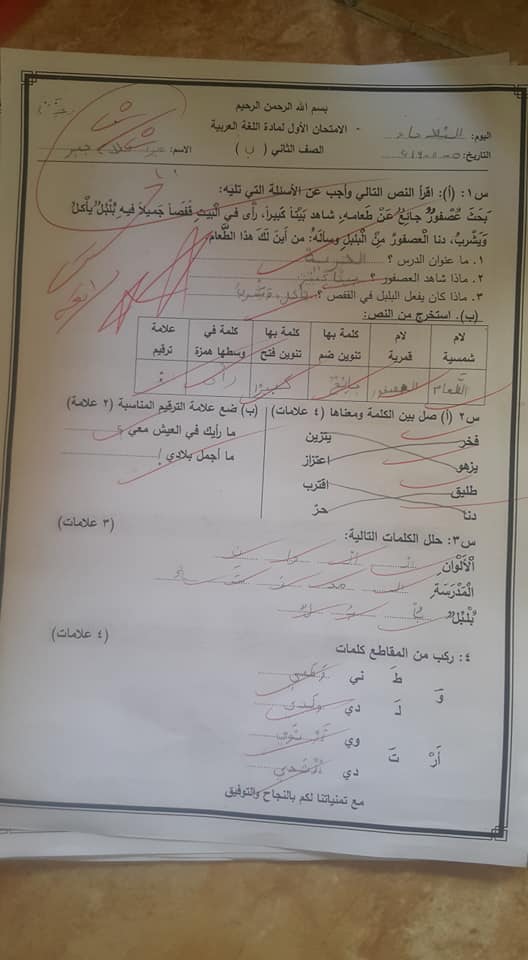 بسم الله الرحمن الرحيم
اليوم: الثلاثاء - الامتحان الأول لمادة اللغة العربية
التاريخ: الصف الثاني (ب) الاسم:
س١: (أ): اقرأ النص التالي وأجب عن الأسئلة التي تليه:
بَحَثَ عُصْفورٌ جائِعٌ عَنْ طَعامِهِ، شاهد بَيْتاً كبيراً، رأى في البَيْتِ قَفَصاً جَميلاً فيهِ بُلْبُلٌ يأكلُ
وَيَشْربُ، دنا العصفورُ مِنْ البلبلِ وسألَهُ: من أينَ لَكَ هذا الطَّعامُ
١. ما عنوان الدرس ؟ الحرية
٢. ماذا شاهد العصفور ؟
٣. ماذا كان يفعل البلبل في القفص ؟ يأكل ويشرب
(ب). استخرج من النص:
لام شمسية لام قمرية كلمة بها تنوين ضم كلمة بها تنوين فتح كلمة في وسطها همزة علامة ترقيم
الطَّعام العصفور جائعٌ كبيراً رأى :
س٢ (أ) صل بين الكلمة ومعناها (٤ علامات) (ب) ضع علامة الترقيم المناسبة (٢ علامة)
فخر يتزين ما رأيك في العيش معي ؟
يزهو اعتزاز ما أجمل بلادي !
طليق اقترب
دنا حرّ
س٣: حلل الكلمات التالية: (٣ علامات)
الْأَلْوَانِ
الْمَدْرَسَةِ
بُلْبُلٌ
٤: ركب من المقاطع كلمات (٤ علامات)
وَ طَ ني وطني
لَ دي ولدي
أَرْ تَ وي أرتوي
دي أرتدي
مع تمنياتنا لكم بالنجاح والتوفيق